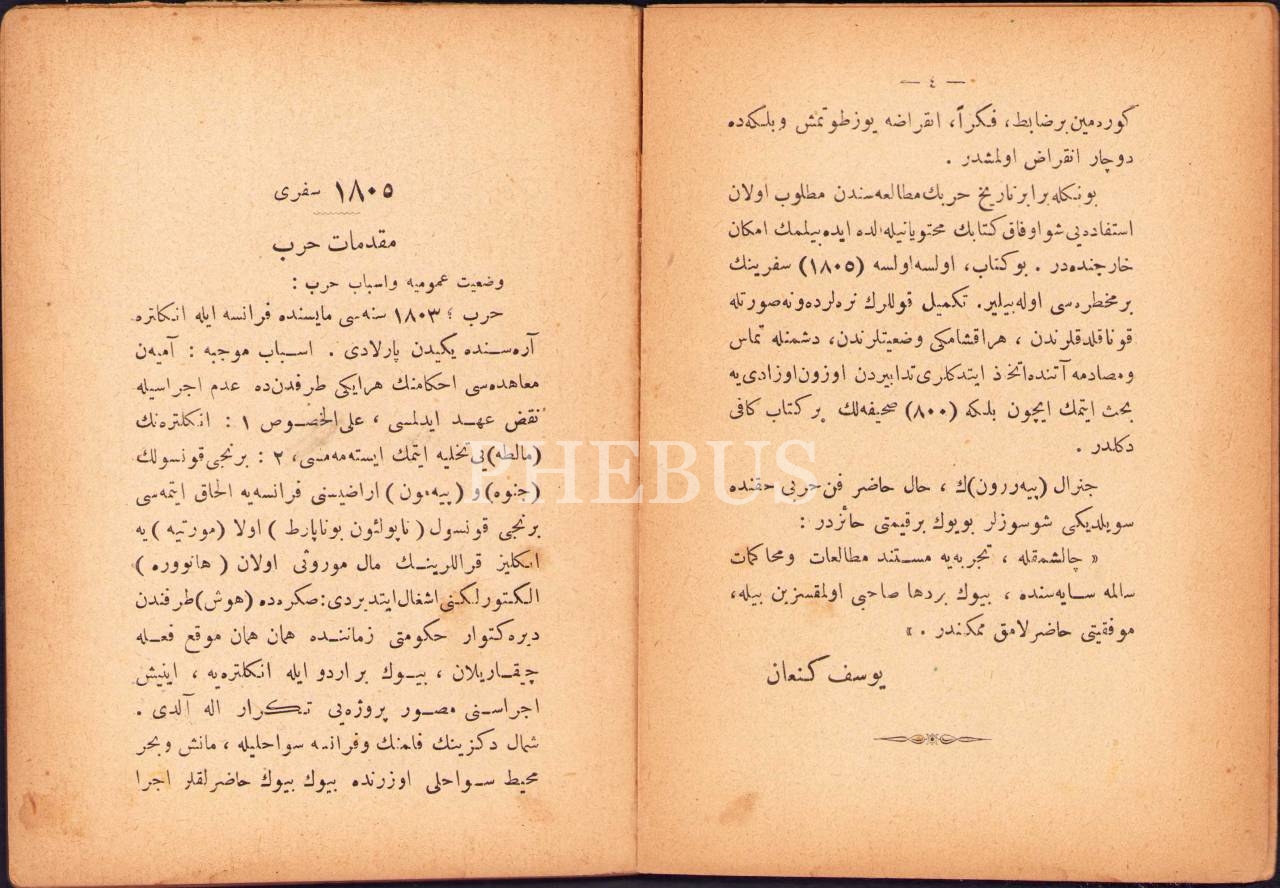 — ٤ —
گورمدین بر ضابط، فکراً، انقراضه یوز طوتمش وبلکه‌ده
دوچار انقراض اولمشدر .
بونکله برابر تاریخ حربك مطالعه‌سندن مطلوب اولان
استفاده‌یی شو اوفاق کتابك محتویاتیله الده ایده بیلمك امکان
خارجنده‌در . بو کتاب، اولسه اولسه (١٨٠٥) سفرینك
بر مخطره‌سی اوله بیلیر. تکمیل قوللرك نره‌لرده و نه صورتله
قوناقلدقلرندن ، هر اقشامکی وضعیتلرندن، دشمنله تماس
ومصادمه آننده اتخذ ایتدکلری تدابیردن اوزون اوزادی‌یه
بحث ایتمك ایچون بلکه (٨٠٠) صحیفه‌لك بر کتاب کافی
دکلدر .
جنرال (پیه‌ررون)ك ، حال حاضر فن حربی حقنده
سویلدیکی شو سوزلر بویوك بر قیمتی حائزدر :
« چالشمقله ، تجربه‌یه مستند مطالعات ومحاکمات
سالمه سایه‌سنده ، بیوك بر دها صاحبی اولمقسزین بیله،
موفقیتی حاضرلامق ممکندر . »
یوسف کنعان
١٨٠٥ سفری
مقدمات حرب
وضعیت عمومیه واسباب حرب :
حرب ؛ ١٨٠٣ سنه‌سی مایسنده فرانسه ایله انکلتره
آره‌سنده یکیدن پارلادی . اسباب موجبه : آمیه‌ن
معاهده‌سی احکامنك هر ایکی طرفدن‌ده عدم اجراسیله
نقض عهد ایدلمسی ، علی الخصوص ١ : انکلتره‌نك
(مالطه)یی تخلیه ایتمك ایسته‌مه‌مسی، ٢ : برنجی قونسولك
(جنوه) و (پیه‌مون) اراضیسنی فرانسه‌یه الحاق ایتمه‌سی
برنجی قونسول ( ناپولئون بوناپارط ) اولا (مورتیه ) یه
انکلیز قراللرینك مال موروثی اولان ( هانووره )
الکتورلکنی اشغال ایتدیردی: صکره‌ده (هوش) طرفندن
دیره‌کتوار حکومتی زماننده همان همان موقع فعله
چیقاریلان ، بیوك بر اردو ایله انکلتره‌یه ، اینیش
اجراسنی مصور پروژه‌یی تکرار اله آلدی .
شمال دکزینك فلمنك وفرانسه سواحلیله ، مانش وبحر
محیط سواحلی اوزرنده بیوك بیوك حاضرلقلر اجرا
PHEBUS